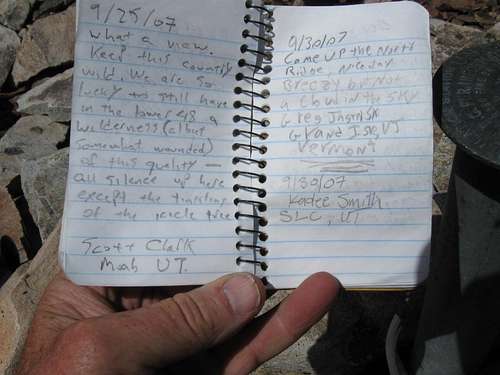 9/25/07
What a view.
Keep this country
wild. We are so
lucky to still have
in the lower 48 a
wilderness (albut
somewhat wounded)
of this quality —
all silence up here
except the tinkling
of the icicle tree
Scott Chalk
Moab UT.
9/30/07
Came up the North
Ridge, Nice day
Breezy but Not
a cloud in the SKY
Greg
Grand Isle, VT
Vermont
9/30/07
Kadee Smith
SLC, UT